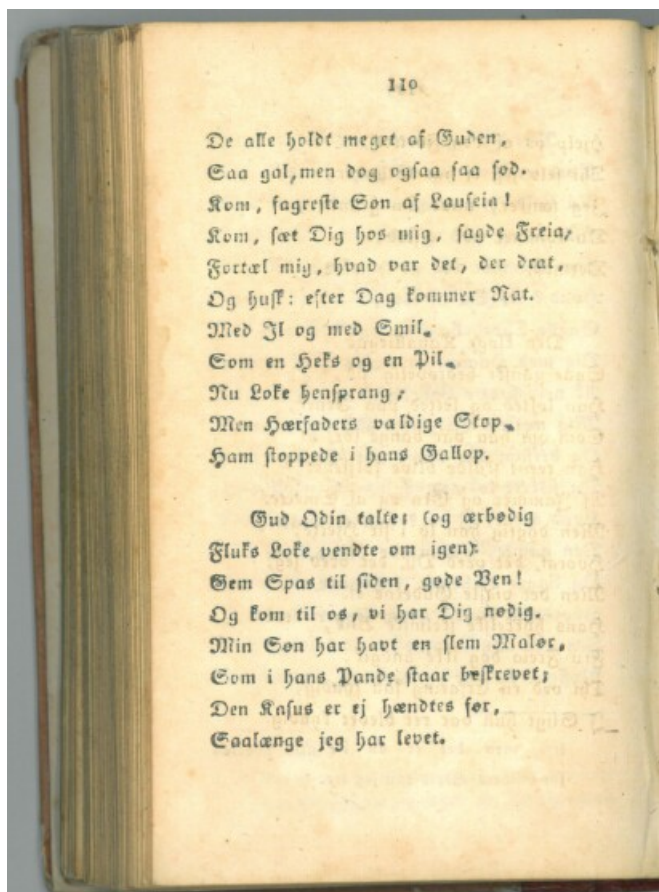 110
De alle holdt meget af Guden,
Saa gal, men dog ogsaa saa sød.
Kom, fagreste Søn af Laufeia!
Kom, sæt Dig hos mig, sagde Freia,
Fortæl mig, hvad var det, der drat,
Og husk: efter Dag kommer Nat.
Med Il og med Smil,
Som en Heks og en Pil,
Nu Loke hensprang;
Men Hærfaders valdige Stop,
Ham stoppede i hans Gallop.
Gud Odin talte: (og ærbødig
Fluks Loke vendte om igen):
Gem Spas til siden, gode Ven!
Og kom til os, vi har Dig nødig.
Min Søn har havt en slem Malør,
Som i hans Pande staar beskrevet;
Den Kasus er ej hændtes før,
Saalænge jeg har levet.